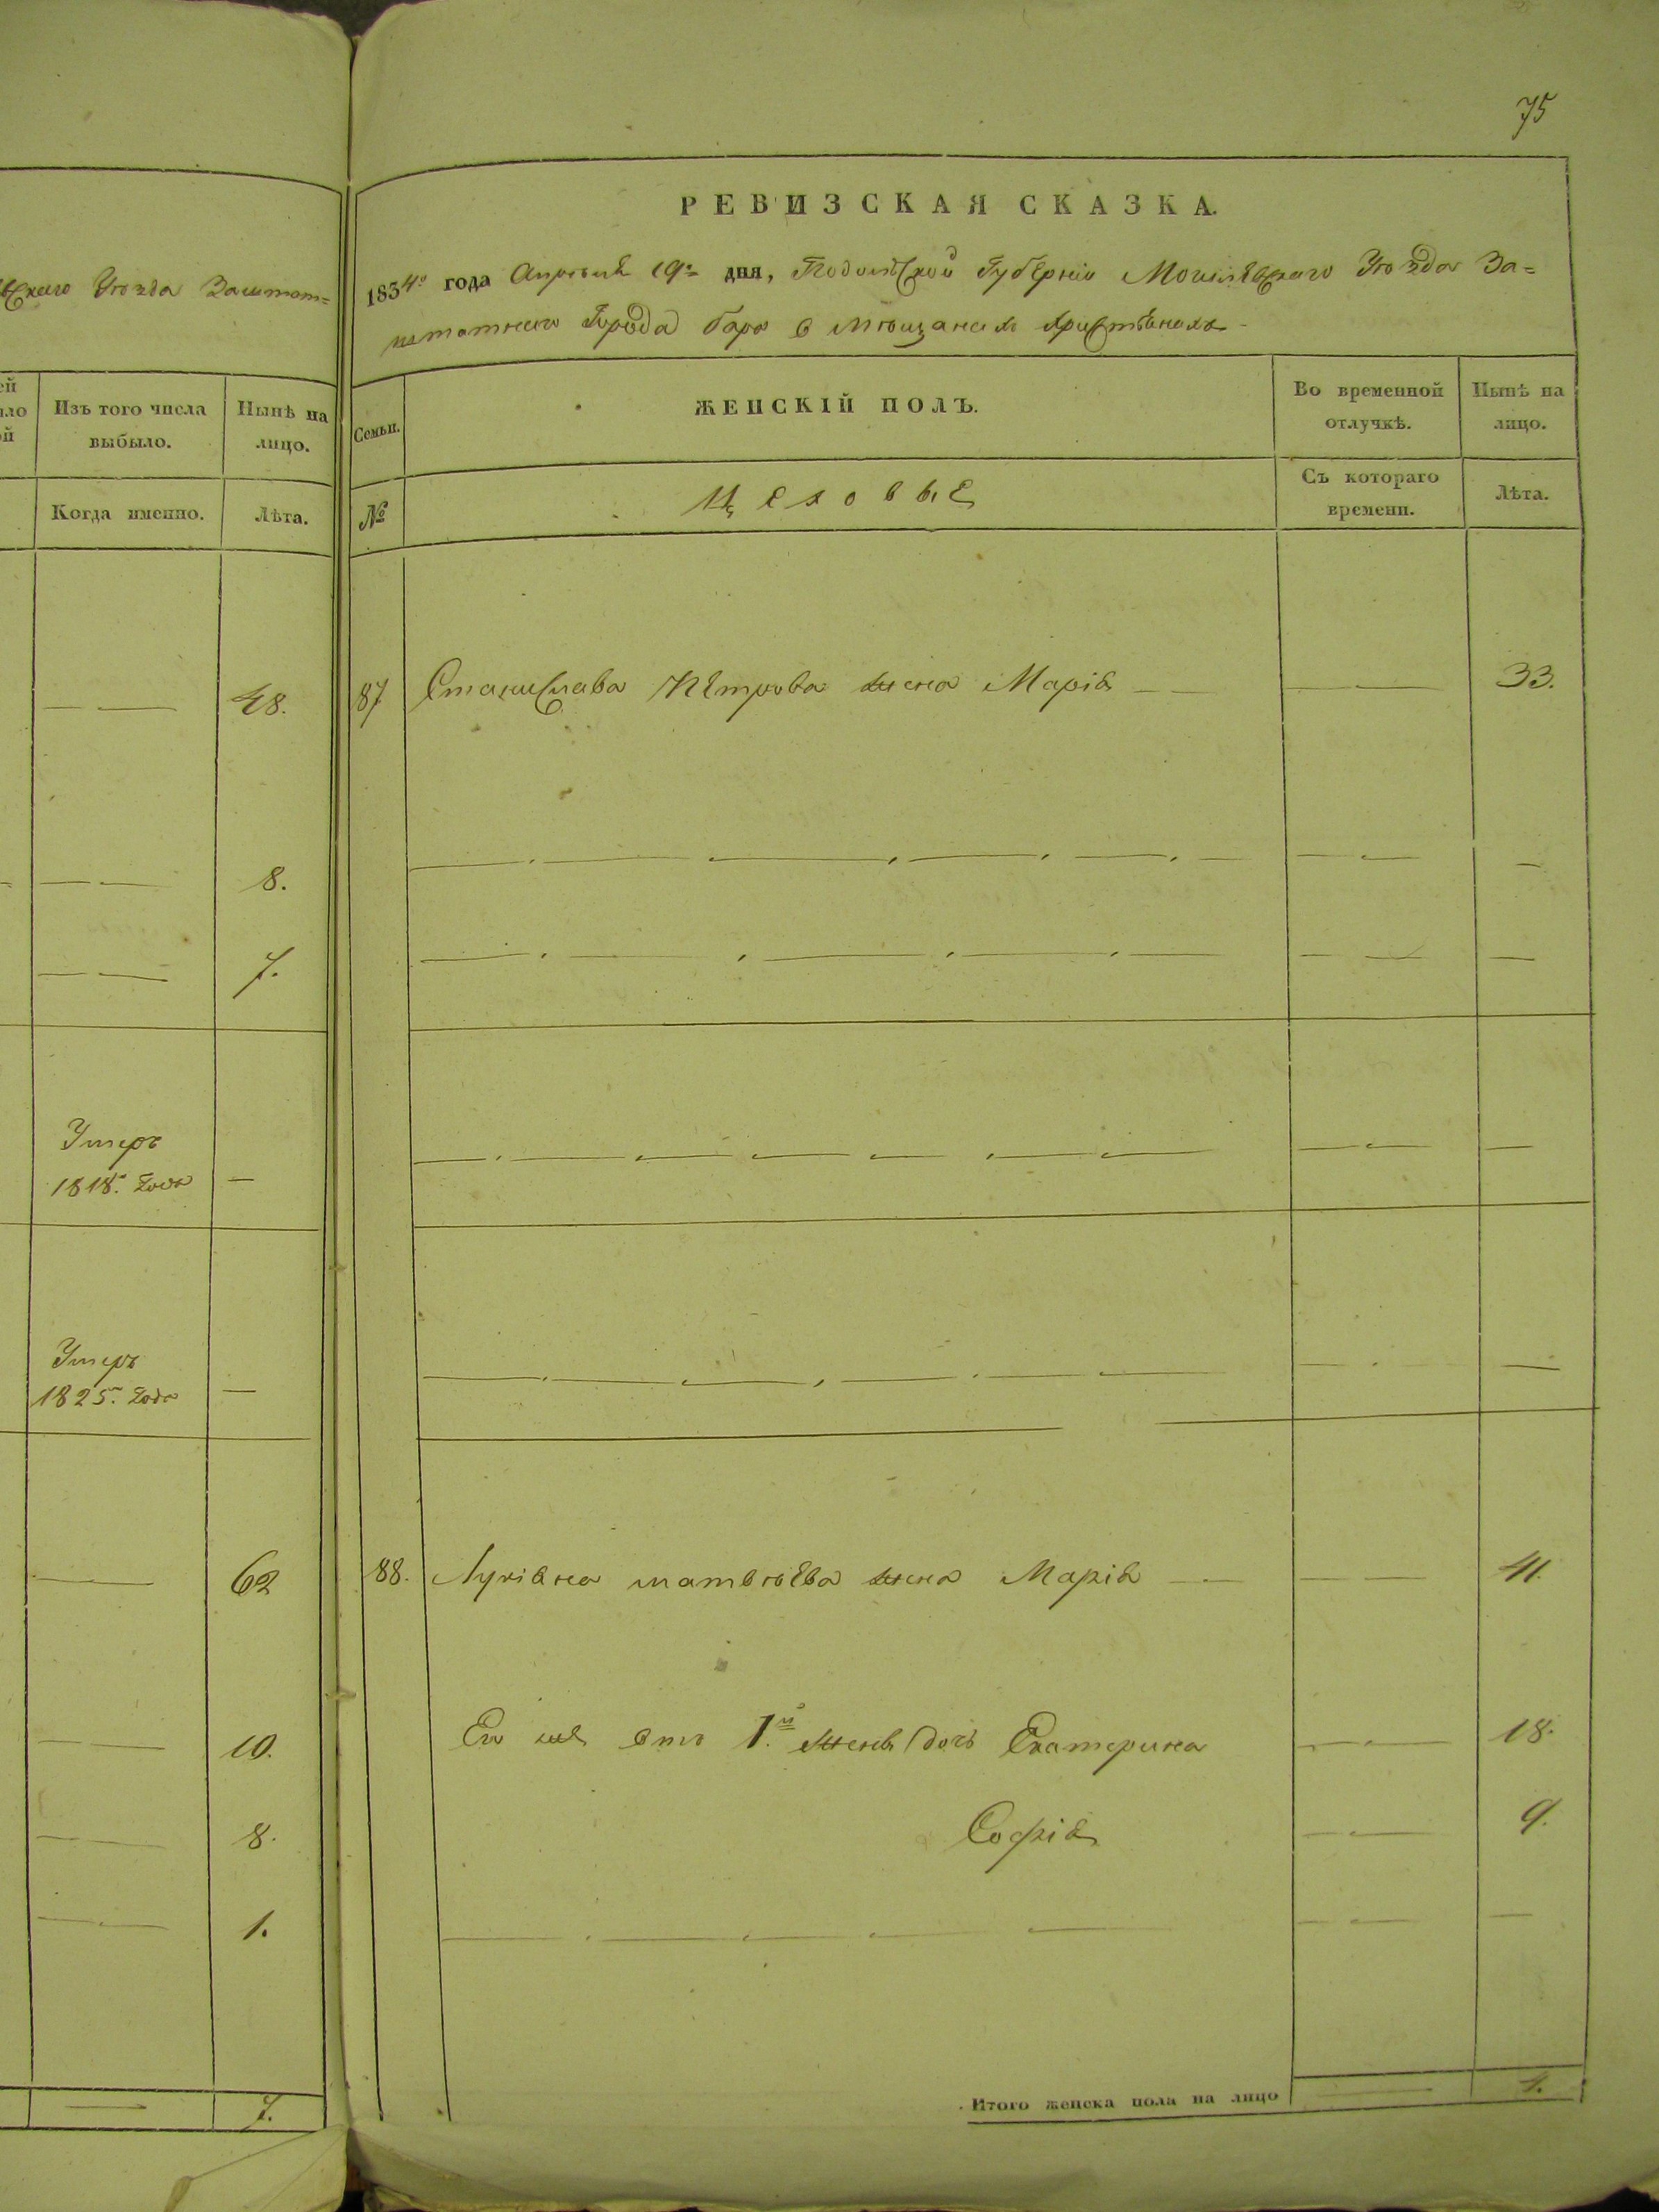 75
скаго Уѣзда Заштат=
ей
ло
ой
Изъ того числа
выбыло.
Нынѣ на
лицо.
Когда именно.
Лѣта.
48.
8.
7.
Умеръ
1818. года
Умеръ
1825. года
62
10.
8.
1.
7.
РЕВИЗСКАЯ СКАЗКА.
1834го года Апрѣля 19го дня, Подольской Губерніи Могилевскаго Уѣзда За=
штатнаго Города Бара о мѣщанахъ христіянахъ
Семьи.
ЖЕНСКІЙ ПОЛЪ.
Во временной
отлучкѣ.
Нынѣ на
лицо.
№
Цеховые
Съ котораго
времени.
Лѣта.
87 Станислава Петрова жена Марія 33.
88. Лукіяна матвѣева жена Марія 41.
Его же отъ 1й жены дочь Екатерина 18.
Софія 9.
Итого женска пола на лицо 4.